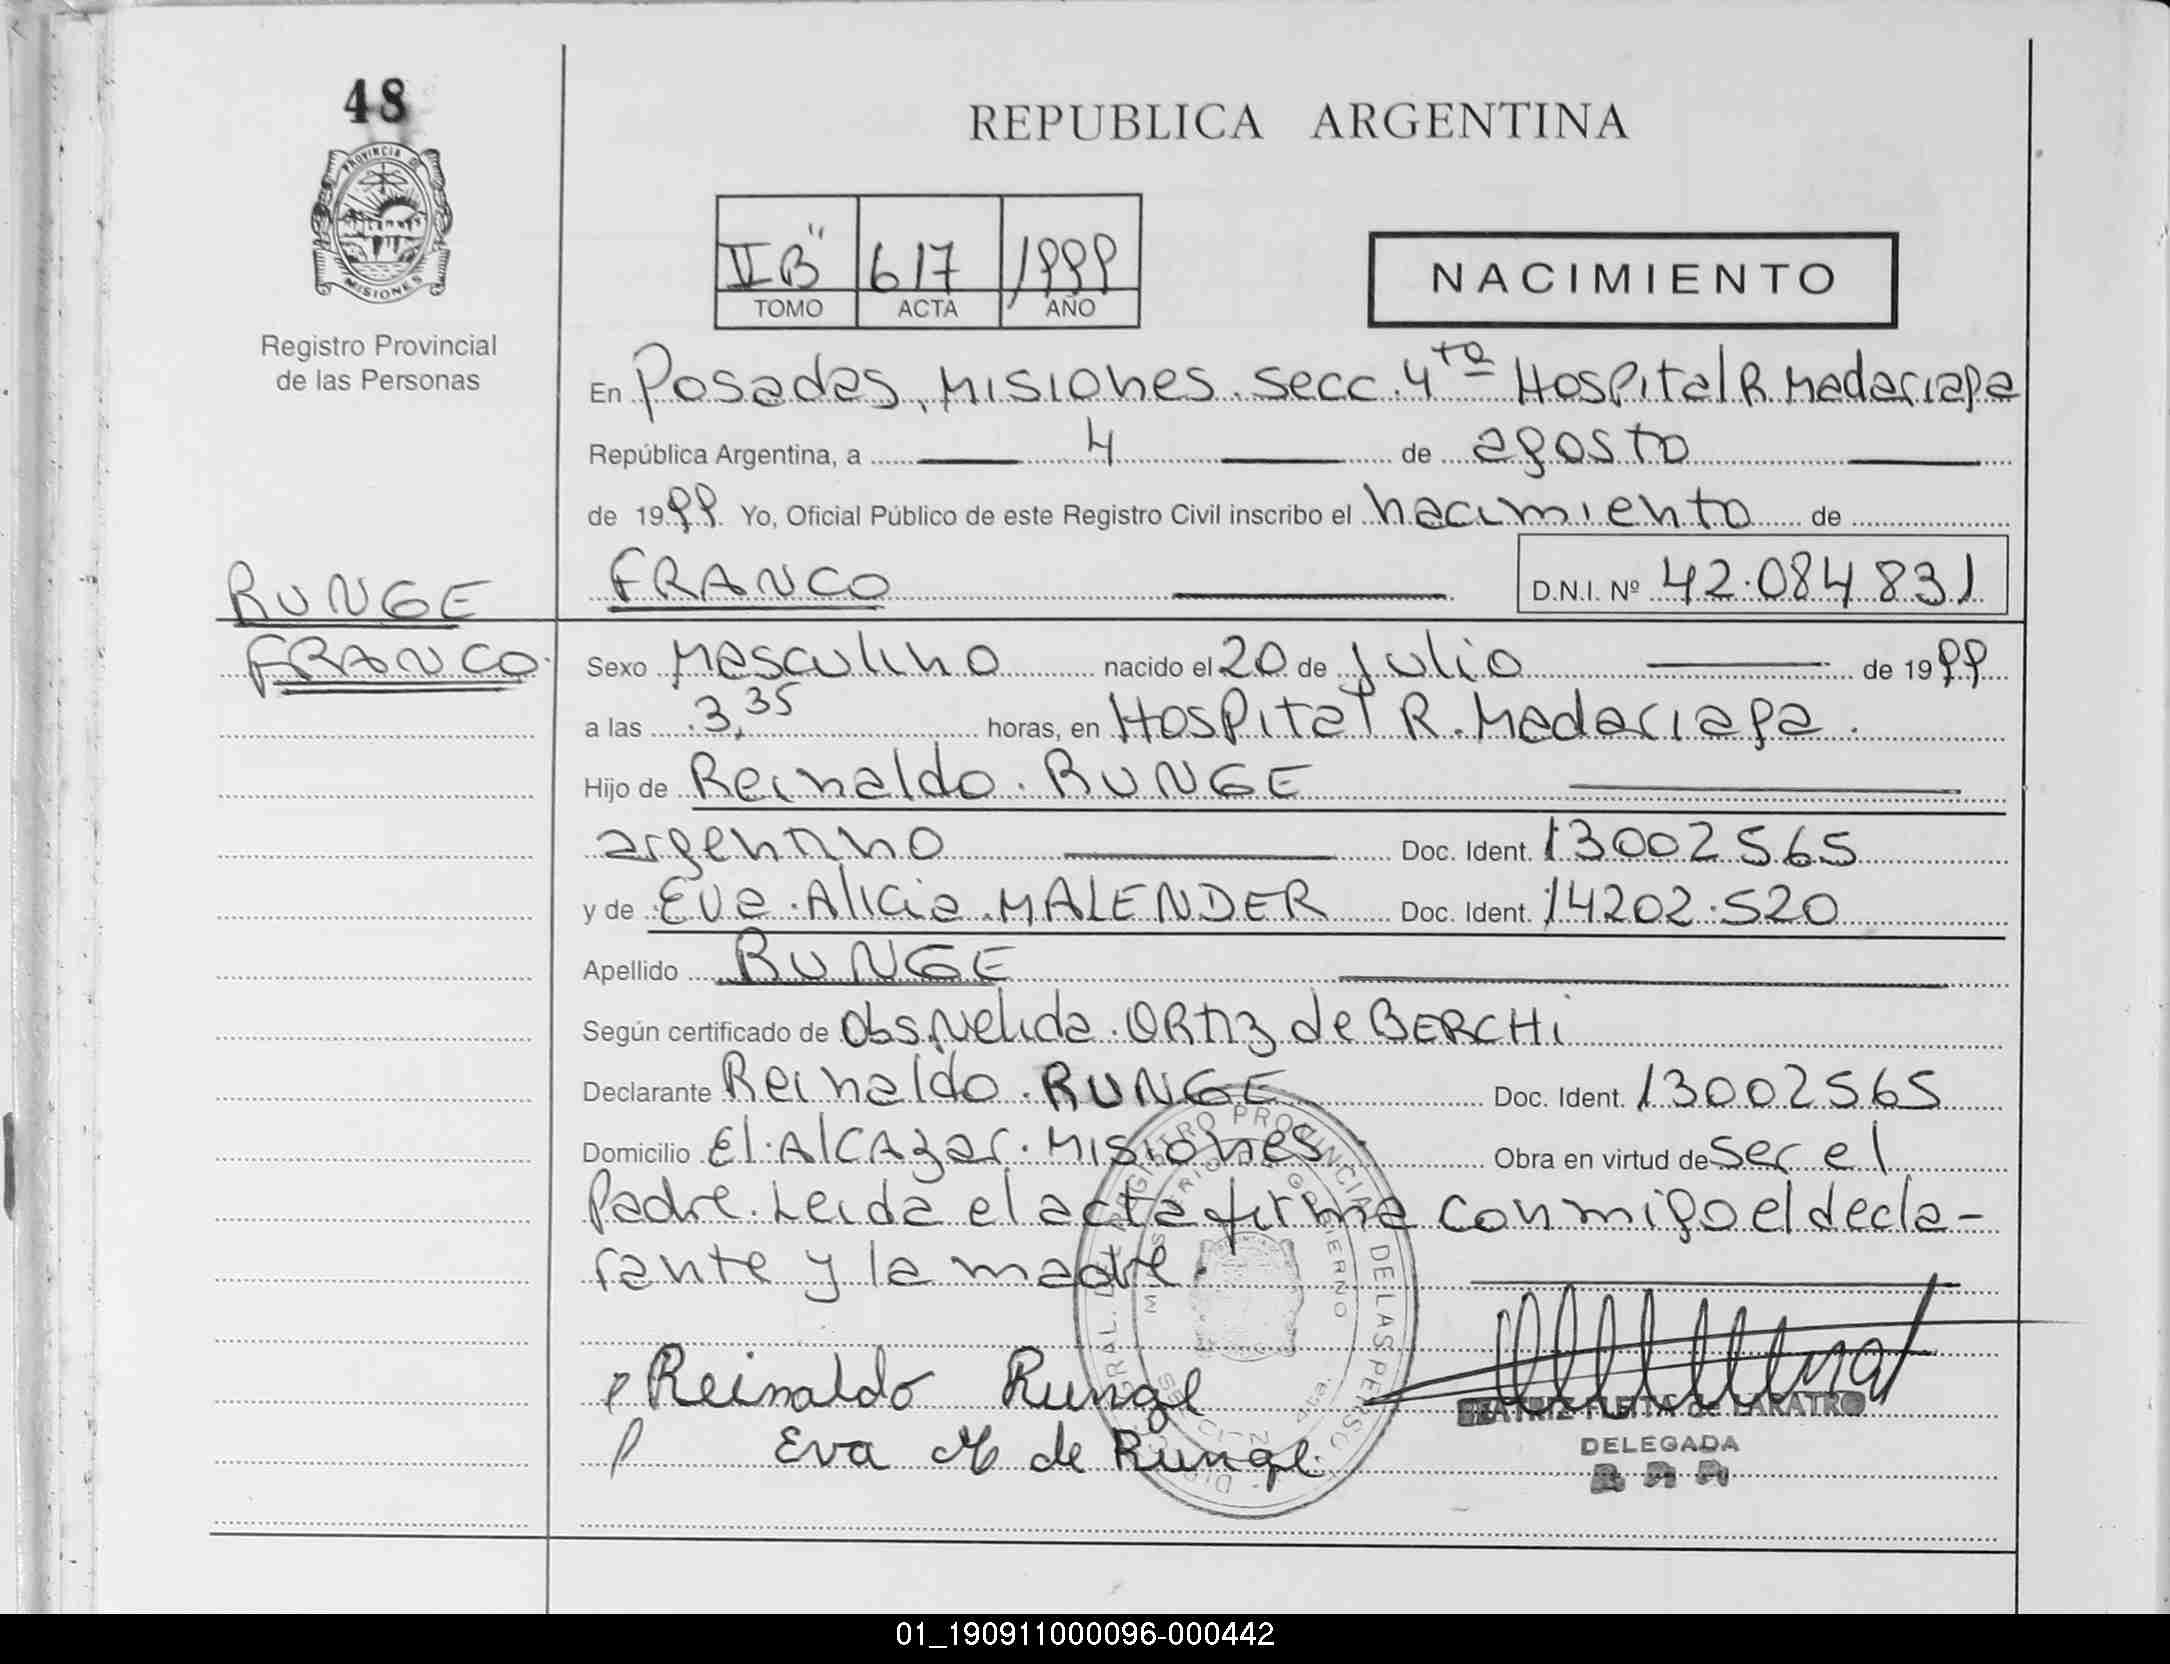 48
PROVINCIA D
MISIONES
Registro Provincial
de las Personas
REPUBLICA ARGENTINA
II B" 617 1999
TOMO ACTA AÑO
NACIMIENTO
En Posadas, Misiones. Secc. 4ta Hospital R. Madariaga
República Argentina, a 4 de agosto
de 1999. Yo, Oficial Público de este Registro Civil inscribo el nacimiento de
FRANCO D.N.I. Nº 42.084 831
RUNGE
FRANCO.
Sexo Masculino nacido el 20 de Julio de 1999
a las 3,35 horas, en Hospital R. Madariaga.
Hijo de Reinaldo. RUNGE
argentino Doc. Ident. 13002565
y de Eva. Alicia. MALENDER Doc. Ident. 14202.520
Apellido RUNGE
Según certificado de Obs. Nelida. ORtiz de BERCHi
Declarante Reinaldo. RUNGE Doc. Ident. 13002565
Domicilio El. AlCAzar. Misiones Obra en virtud de ser el
Padre. Leida el acta firma conmigo el decla-
rante y la madre
REGISTRO PROVINCIAL DE LAS PERSO
MINISTERIO DE GOBIERNO
Reinaldo Runge
Eva M de Runge.
BEATRIZ de
DELEGADA
01_190911000096-000442